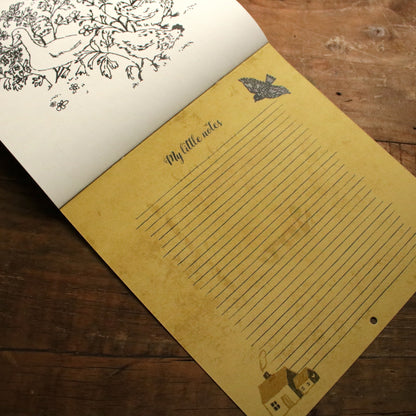 My little notes